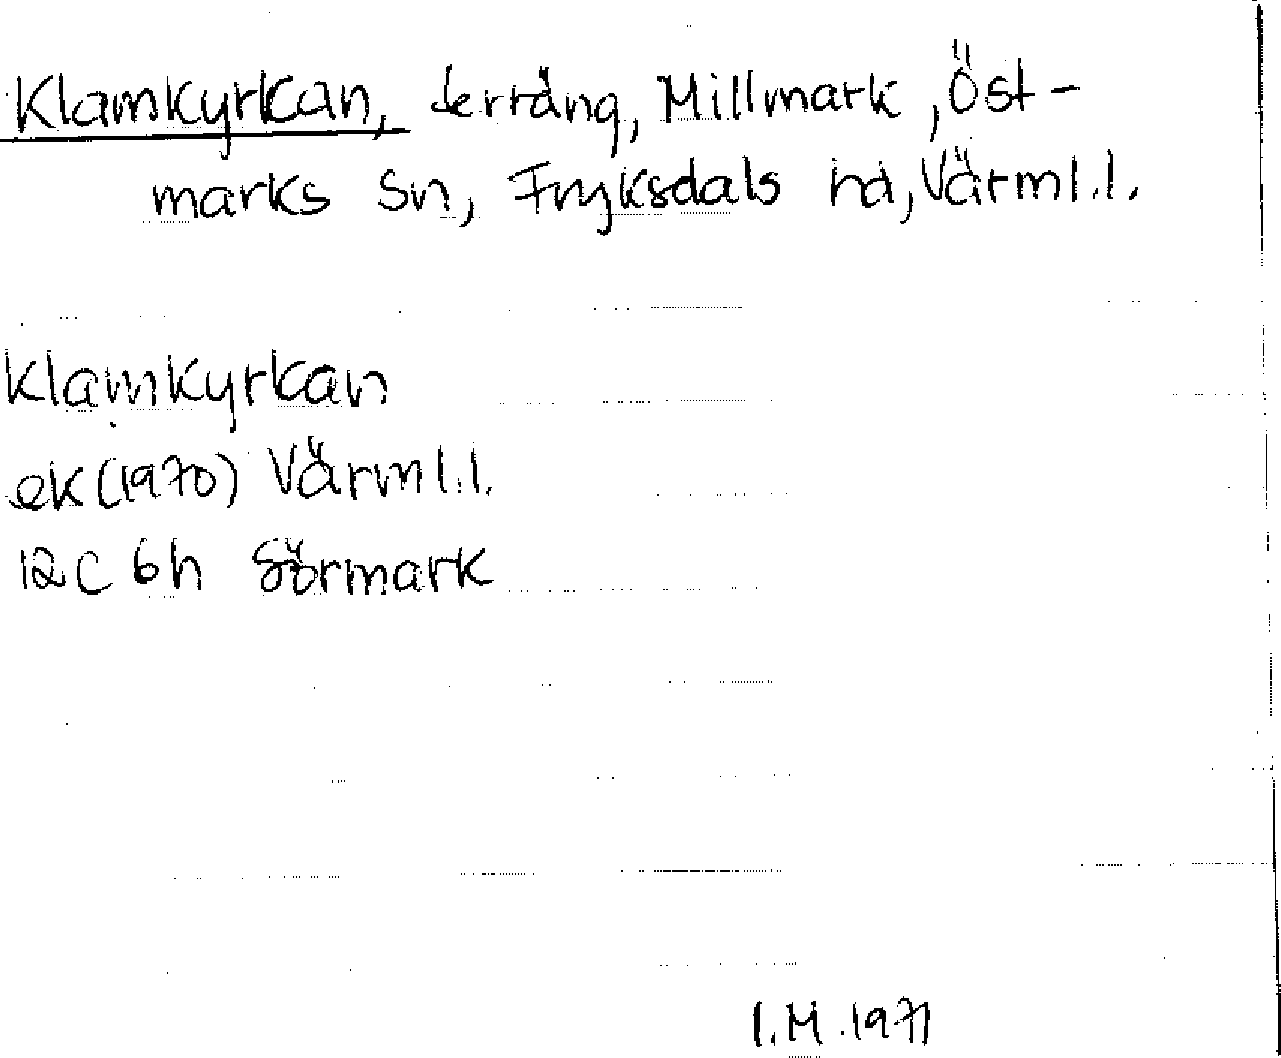 Klamkyrkan, terräng, Millmark, Öst-
marks sn, Fryksdals hd, Värml.l.
Klamkyrkan
ek(1970) Värml.l.
12C 6h Sörmark
I.M. 1971